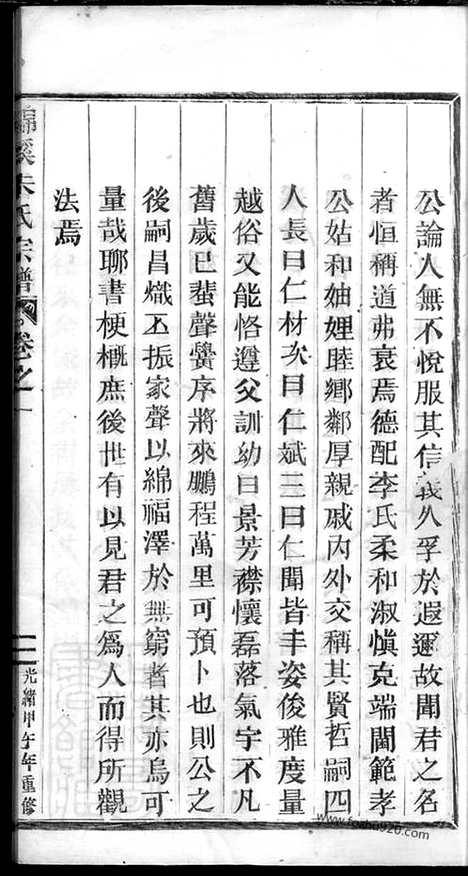 公論人無不悅服其信義久孚於遐邇故聞君之名
者恒稱道弗衰焉德配李氏柔和淑愼克端閫範孝
公姑和妯娌睦鄉鄰厚親戚內外交稱其賢哲嗣四
人長曰仁材次曰仁斌三曰仁聞皆丰姿俊雅度量
越俗又能恪遵父訓幼曰景芳襟懷磊落氣宇不凡
舊歲已蜚聲黌序將來鵬程萬里可預卜也則公之
後嗣昌熾丕振家聲以綿福澤於無窮者其亦烏可
量哉聊書梗概庶後世有以見君之爲人而得所觀
法焉
朱氏宗譜 卷之一
光緒甲午年重修
www.foshu920.com